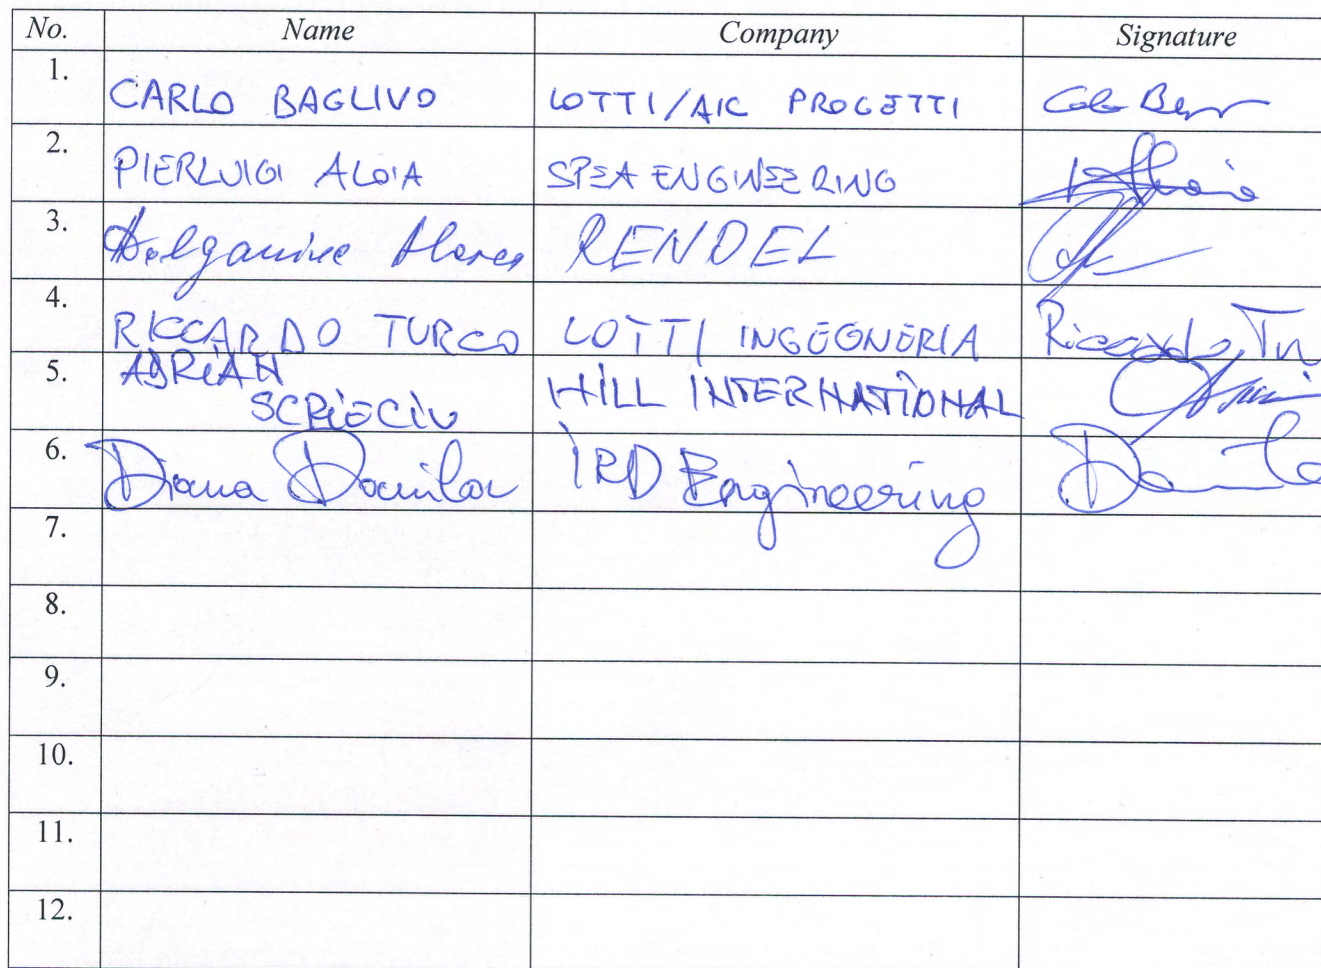 No. Name Company Signature
1. CARLO BAGLIVO LOTTI/AIC PROGETTI
2. PIERLUIGI ALOIA SPEA ENGINEERING
3. RENDEL
4. RICCARDO TURCO LOTTI INGEGNERIA Riccardo Tu
5. ADRIAN
SCRIECIU HILL INTERNATIONAL
6. Diana Danilov IRD Engineering
7.
8.
9.
10.
11.
12.